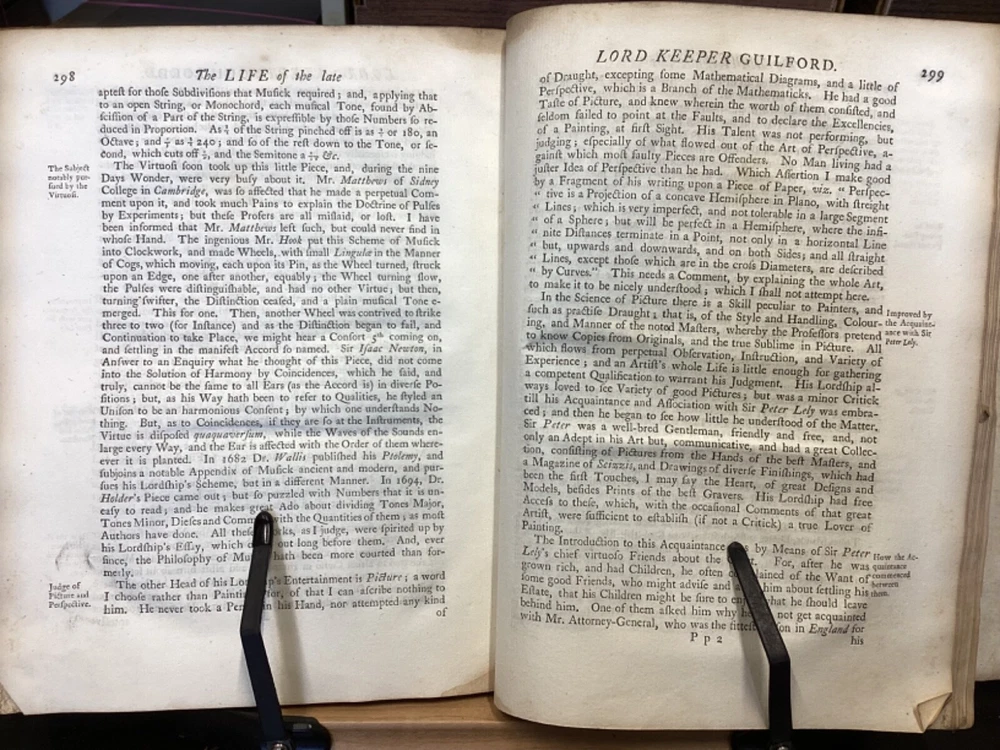 298
The LIFE of the late
aptest for those Subdivisions that Musick required; and, applying that
to an open String, or Monochord, each musical Tone, found by Ab-
scission of a Part of the String, is expressible by those Numbers so re-
duced in Proportion. As of the String pinched off is as or 180, an
Octave; and as 240; and so of the rest down to the Tone, or se-
cond, which cuts off, and the Semitone a &c.
The Subject
notably pur-
sued by the
Virtuosi.
The Virtuosi soon took up this little Piece, and, during the nine
Days Wonder, were very busy about it. Mr. Matthews of Sidney
College in Cambridge, was so affected that he made a perpetual Com-
ment upon it, and took much Pains to explain the Doctrine of Pulses
by Experiments; but these Prosers are all mislaid, or lost. I have
been informed that Mr. Matthews left such, but could never find in
whose Hand. The ingenious Mr. Hook put this Scheme of Musick
into Clockwork, and made Wheels, with small Lingulæ in the Manner
of Cogs, which moving, each upon its Pin, as the Wheel turned, struck
upon an Edge, one after another, equably; the Wheel turning slow,
the Pulses were distinguishable, and had no other Virtue; but then,
turning swifter, the Distinction ceased, and a plain musical Tone e-
merged. This for one. Then, another Wheel was contrived to strike
three to two (for Instance) and as the Distinction began to fail, and
Continuation to take Place, we might hear a Consort 5th coming on,
and settling in the manifest Accord so named. Sir Isaac Newton, in
Answer to an Enquiry what he thought of this Piece, did not come
into the Solution of Harmony by Coincidences, which he said, and
truly, cannot be the same to all Ears (as the Accord is) in diverse Po-
sitions; but, as his Way hath been to refer to Qualities, he styled an
Unison to be an harmonious Consent; by which one understands No-
thing. But, as to Coincidences, if they are so at the Instruments, the
Virtue is disposed quaquaversum, while the Waves of the Sounds en-
large every Way, and the Ear is affected with the Order of them where-
ever it is planted. In 1682 Dr. Wallis published his Ptolemy, and
subjoins a notable Appendix of Musick ancient and modern, and pur-
sues his Lordship's Scheme, but in a different Manner. In 1694, Dr.
Holder's Piece came out; but so puzzled with Numbers that it is un-
easy to read; and he makes great Ado about dividing Tones Major,
Tones Minor, Dieses and with the Quantities of them; as most
Authors have done. All as I judge, were spirited up by
his Lordship's Essay, which out long before them. And, ever
since, the Philosophy of hath been more courted than for-
merly.
Judge of
Picture and
Perspective.
The other Head of his Entertainment is Picture; a word
I choose rather than of that I can ascribe nothing to
him. He never took a in his Hand, nor attempted any kind
of
LORD KEEPER GUILFORD.
299
of Draught, excepting some Mathematical Diagrams, and a little of
Perspective, which is a Branch of the Mathematicks. He had a good
Taste of Picture, and knew wherein the worth of them consisted, and
seldom failed to point at the Faults, and to declare the Excellencies,
of a Painting, at first Sight. His Talent was not performing, but
judging; especially of what flowed out of the Art of Perspective, a-
gainst which most faulty Pieces are Offenders. No Man living had a
juster Idea of Perspective than he had. Which Assertion I make good
by a Fragment of his writing upon a Piece of Paper, viz. "Perspec-
" tive is a Projection of a concave Hemisphere in Plano, with streight
" Lines; which is very imperfect, and not tolerable in a large Segment
" of a Sphere; but will be perfect in a Hemisphere, where the infi-
" nite Distances terminate in a Point, not only in a horizontal Line
" but, upwards and downwards, and on both Sides; and all straight
" Lines, except those which are in the cross Diameters, are described
" by Curves." This needs a Comment, by explaining the whole Art,
to make it to be nicely understood; which I shall not attempt here.
In the Science of Picture there is a Skill peculiar to Painters, and
such as practise Draught; that is, of the Style and Handling, Colour-
ing, and Manner of the noted Masters, whereby the Professors pretend
to know Copies from Originals, and the true Sublime in Picture. All
which flows from perpetual Observation, Instruction, and Variety of
Experience; and an Artist's whole Life is little enough for gathering
a competent Qualification to warrant his Judgment. His Lordship al-
ways loved to see Variety of good Pictures; but was a minor Critick
till his Acquaintance and Association with Sir Peter Lely was embra-
ced; and then he began to see how little he understood of the Matter.
Sir Peter was a well-bred Gentleman, friendly and free, and, not
only an Adept in his Art but, communicative, and had a great Collec-
tion, consisting of Pictures from the Hands of the best Masters, and
a Magazine of Scizzis, and Drawings of diverse Finishings, which had
been the first Touches, I may say the Heart, of great Designs and
Models, besides Prints of the best Gravers. His Lordship had free
Access to these, which, with the occasional Comments of that great
Artist, were sufficient to establish (if not a Critick) a true Lover of
Painting.
Improved by
the Acquaint-
ance with Sir
Peter Lely.
The Introduction to this Acquaintance by Means of Sir Peter
Lely's chief virtuoso Friends about the For, after he was
grown rich, and had Children, he often of the Want of
some good Friends, who might advise and him about settling his
Estate, that his Children might be sure to what he should leave
behind him. One of them asked him why not get acquainted
with Mr. Attorney-General, who was the in England for
How the Ac-
quaintance
commenced
between
them.
P p 2
his